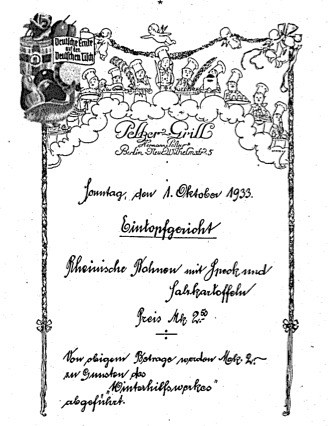 Deutsche Ernte
auf den
Deutschen Tisch
Pelzer-Grill
Hermann Pelzer
Berlin Neue Wilhelmstr. 5
Sonntag, den 1. Oktober 1933.
Eintopfgericht
Rheinische Bohnen mit Speck und
Salzkartoffeln
Preis Mk. 2.50
Von obigem Betrage werden Mk. 2.-
zu Gunsten des
"Winterhilfswerkes"
abgeführt.